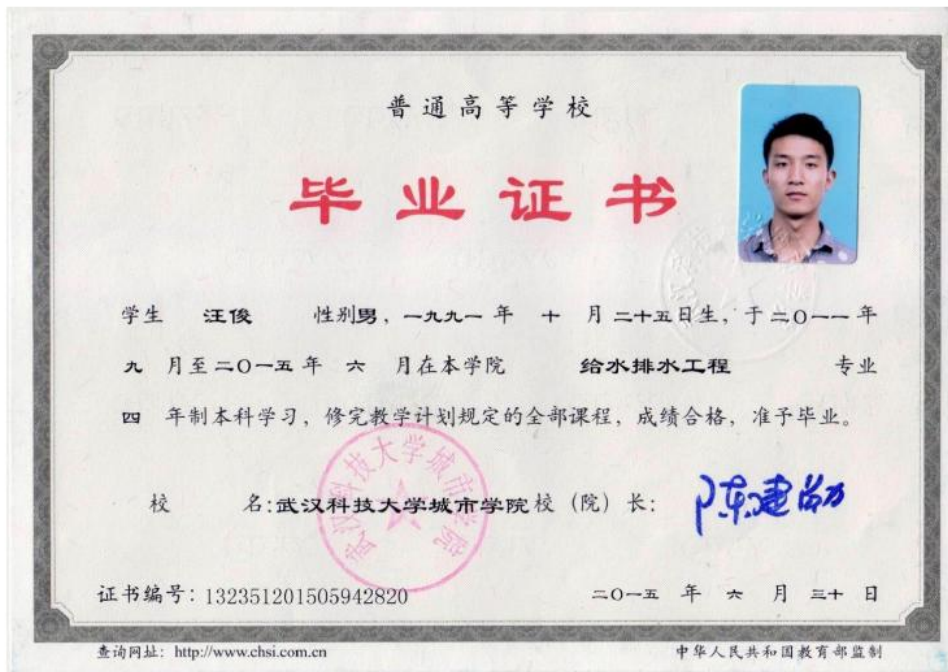 普通高等学校
毕业证书
学生 汪俊 性别男，一九九一年 十 月二十五日生，于二〇一一年
九 月至二〇一五年 六 月在本学院 给水排水工程 专业
四 年制本科学习，修完教学计划规定的全部课程，成绩合格，准予毕业。
校 名：武汉科技大学城市学院 校（院）长：陈建勋
武汉科技大学城市学院
证书编号：132351201505942820 二〇一五 年 六 月 三十 日
查询网址：http://www.chsi.com.cn 中华人民共和国教育部监制